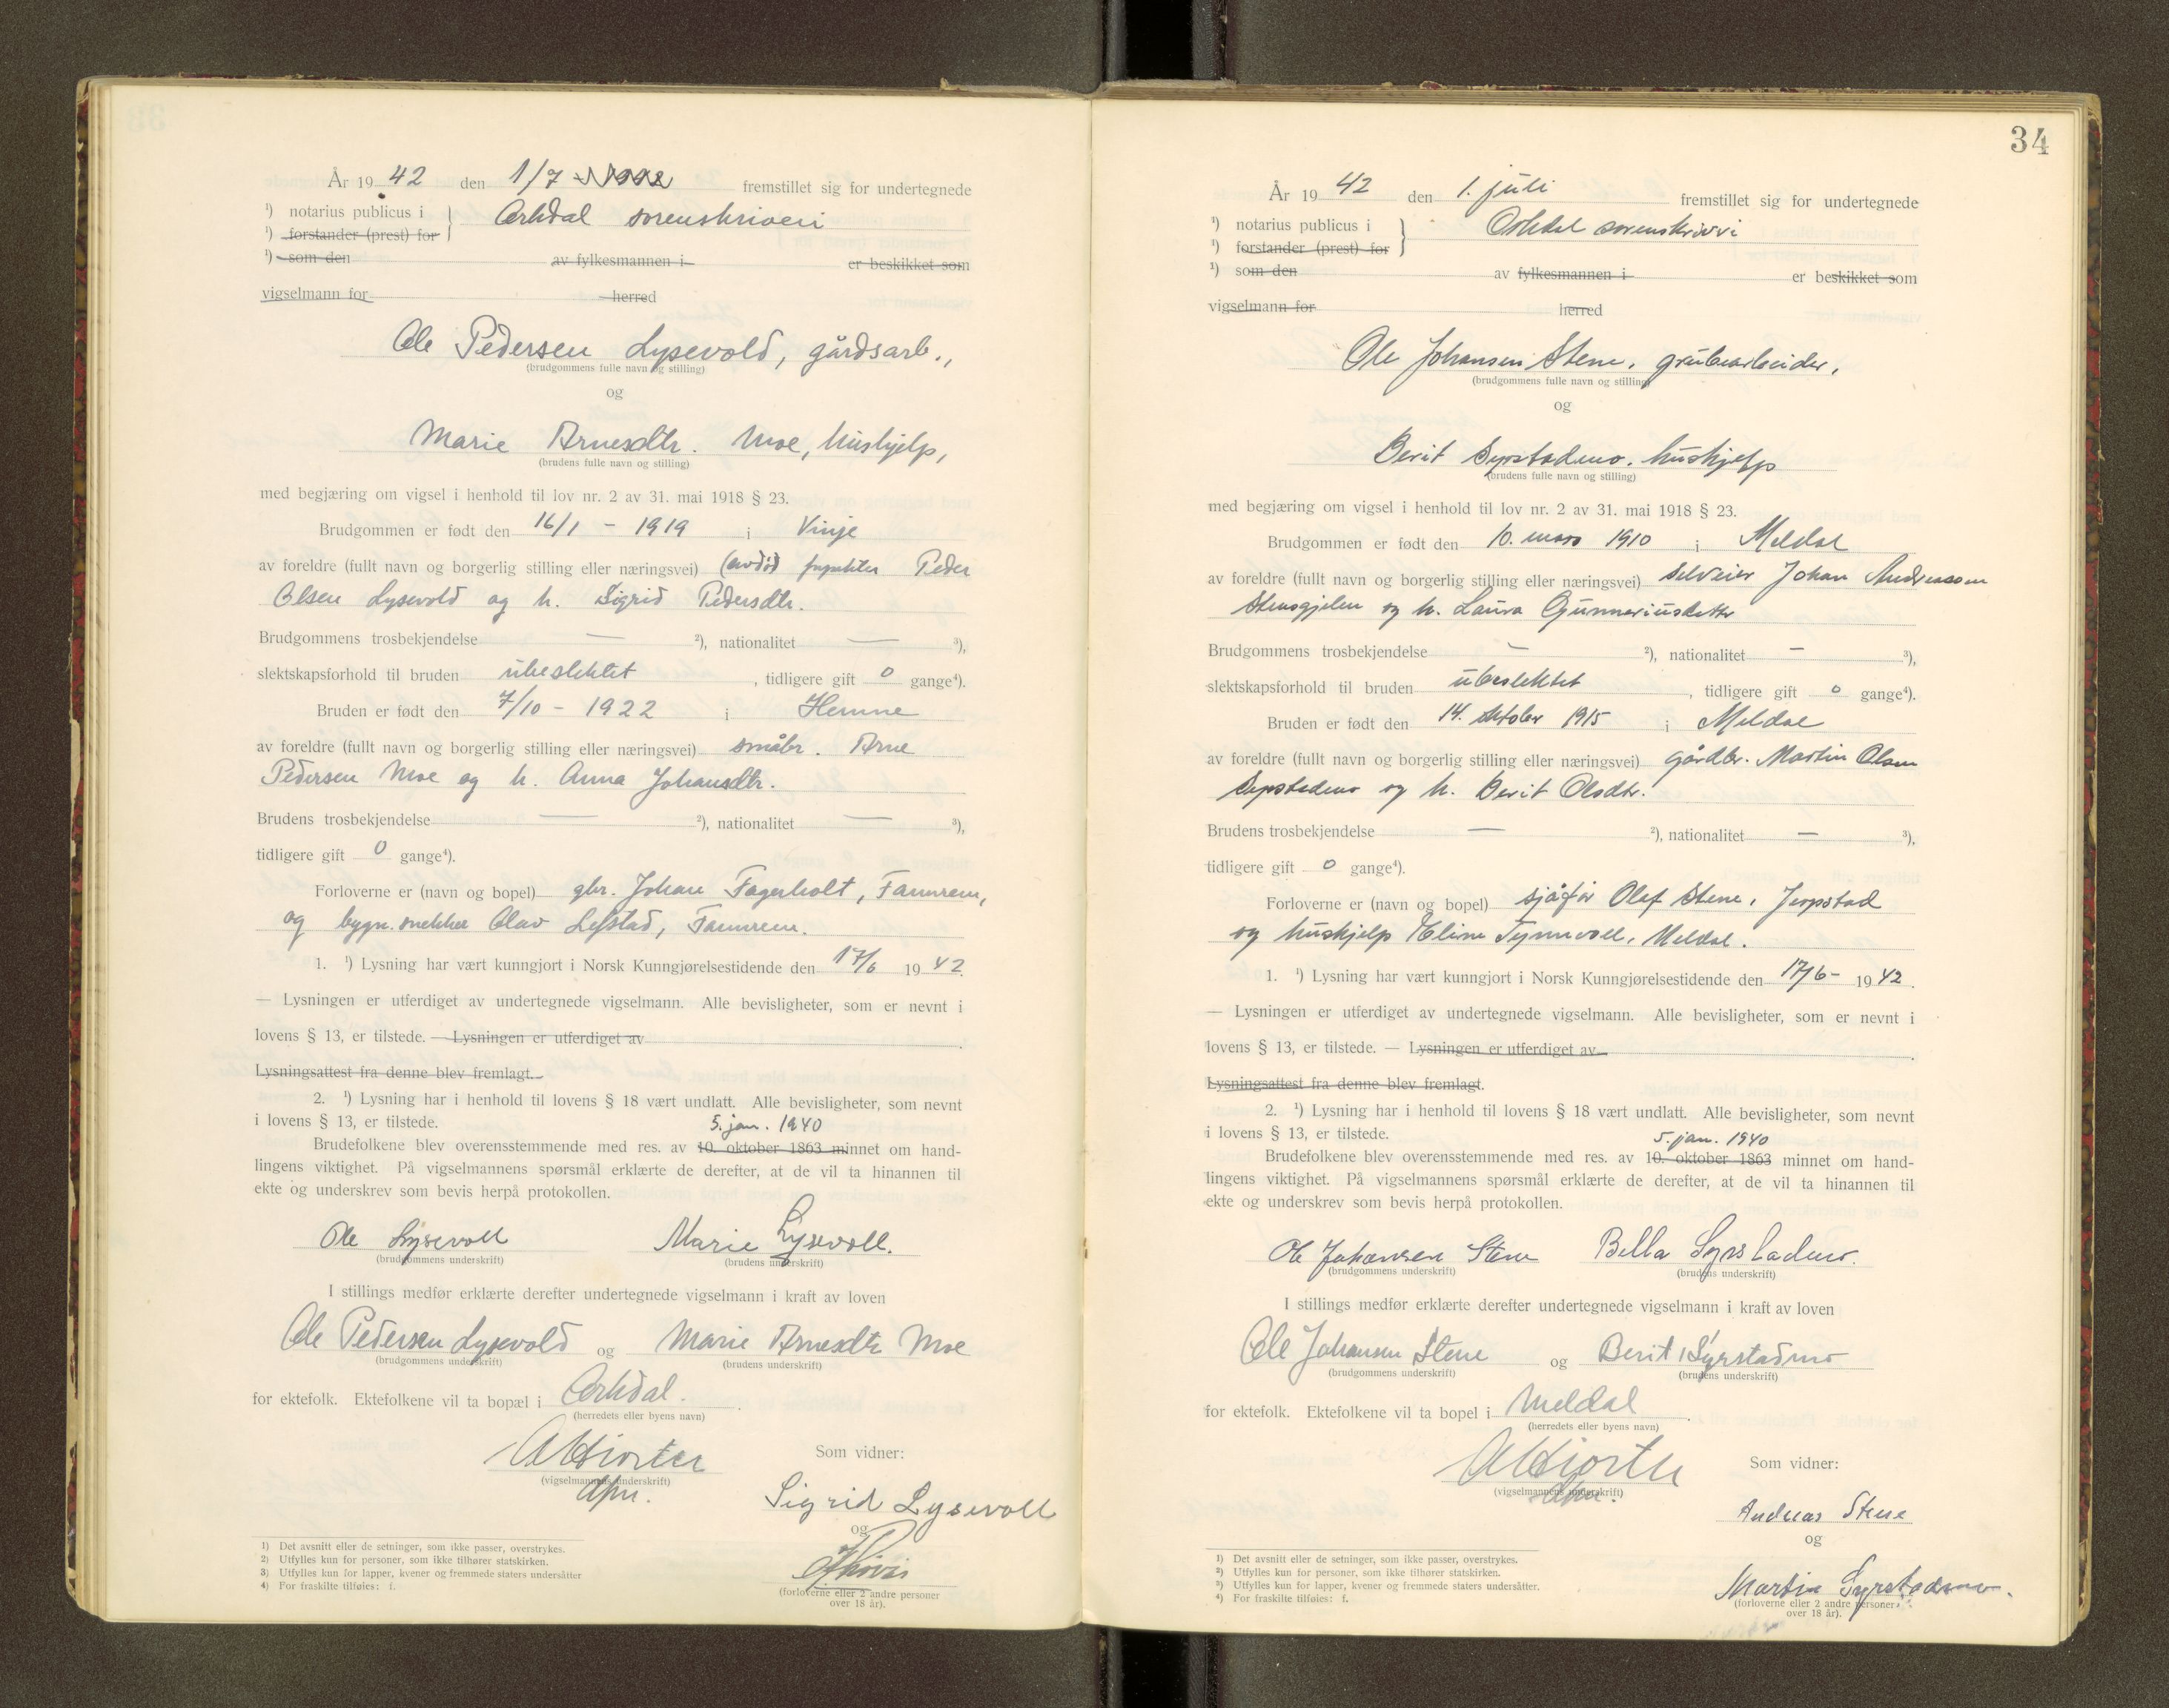 År 19 42 den 1/7 fremstillet sig for undertegnede
¹) notarius publicus i } Orkdal sorenskriveri
¹) forstander (prest) for
¹) som den av fylkesmannen i er beskikket som
vigselmann for herred
Ole Pedersen Lysevold, gårdsarb.,
(brudgommens fulle navn og stilling)
og
Marie Arnesdtr. Moe, hushjelp,
(brudens fulle navn og stilling)
med begjæring om vigsel i henhold til lov nr. 2 av 31. mai 1918 § 23.
Brudgommen er født den 16/1 - 1919 i Vinje
av foreldre (fullt navn og borgerlig stilling eller næringsvei) (avdød) Peder
Olsen Lysevold og h. Sigrid Pedersdtr.
Brudgommens trosbekjendelse — ²), nationalitet — ³),
slektskapsforhold til bruden ubeslektet , tidligere gift 0 gange⁴).
Bruden er født den 7/10 - 1922 i Hemne
av foreldre (fullt navn og borgerlig stilling eller næringsvei) småbr. Arne
Pedersen Moe og h. Anna Johansdtr.
Brudens trosbekjendelse — ²), nationalitet — ³),
tidligere gift 0 gange⁴).
Forloverne er (navn og bopel) gbr. Johan Fagerholt, Fannrem,
og bygn.snekker Olav Lefstad, Fannrem.
1. ¹) Lysning har vært kunngjort i Norsk Kunngjørelsestidende den 17/6 19 42.
— Lysningen er utferdiget av undertegnede vigselmann. Alle bevisligheter, som er nevnt i
lovens § 13, er tilstede. — Lysningen er utferdiget av .
Lysningsattest fra denne blev fremlagt.
2. ¹) Lysning har i henhold til lovens § 18 vært undlatt. Alle bevisligheter, som nevnt
i lovens § 13, er tilstede. 5. jan. 1940
Brudefolkene blev overensstemmende med res. av 10. oktober 1863 minnet om hand-
lingens viktighet. På vigselmannens spørsmål erklærte de derefter, at de vil ta hinannen til
ekte og underskrev som bevis herpå protokollen.
Ole Lysevoll Marie Lysevoll.
(brudgommens underskrift) (brudens underskrift)
I stillings medfør erklærte derefter undertegnede vigselmann i kraft av loven
Ole Pedersen Lysevold og Marie Arnesdtr Moe
(brudgommens underskrift) (brudens underskrift)
for ektefolk. Ektefolkene vil ta bopæl i Orkdal.
(herredets eller byens navn)
Som vidner:
(vigselmannens underskrift)
Sigrid Lysevoll
og
(forloverne eller 2 andre personer
over 18 år).
1) Det avsnitt eller de setninger, som ikke passer, overstrykes.
2) Utfylles kun for personer, som ikke tilhører statskirken.
3) Utfylles kun for lapper, kvener og fremmede staters undersåtter
4) For fraskilte tilføies: f.
34
År 19 42 den 1. juli fremstillet sig for undertegnede
¹) notarius publicus i } Orkdal sorenskriveri
¹) forstander (prest) for
¹) som den av fylkesmannen i er beskikket som
vigselmann for herred
Ole Johansen Stene, grubearbeider,
(brudgommens fulle navn og stilling)
og
Berit Syrstadmo, hushjelp
(brudens fulle navn og stilling)
med begjæring om vigsel i henhold til lov nr. 2 av 31. mai 1918 § 23.
Brudgommen er født den 10. mars 1910 i Meldal
av foreldre (fullt navn og borgerlig stilling eller næringsvei) selveier Johan Andreassen
Stensgjelen og h. Laura Gunneriusdatter
Brudgommens trosbekjendelse — ²), nationalitet — ³),
slektskapsforhold til bruden ubeslektet , tidligere gift 0 gange⁴).
Bruden er født den 14. oktober 1915 i Meldal
av foreldre (fullt navn og borgerlig stilling eller næringsvei) gårdbr. Martin Olsen
Syrstadmo og h. Berit Olsdtr.
Brudens trosbekjendelse — ²), nationalitet — ³),
tidligere gift 0 gange⁴).
Forloverne er (navn og bopel) sjåfør Olaf Stene, Jerpstad
og hushjelp Eline Tynnvoll, Meldal.
1. ¹) Lysning har vært kunngjort i Norsk Kunngjørelsestidende den 17/6- 19 42.
— Lysningen er utferdiget av undertegnede vigselmann. Alle bevisligheter, som er nevnt i
lovens § 13, er tilstede. — Lysningen er utferdiget av .
Lysningsattest fra denne blev fremlagt.
2. ¹) Lysning har i henhold til lovens § 18 vært undlatt. Alle bevisligheter, som nevnt
i lovens § 13, er tilstede. 5. jan. 1940
Brudefolkene blev overensstemmende med res. av 10. oktober 1863 minnet om hand-
lingens viktighet. På vigselmannens spørsmål erklærte de derefter, at de vil ta hinannen til
ekte og underskrev som bevis herpå protokollen.
Ole Johansen Stene Bella Syrstadmo.
(brudgommens underskrift) (brudens underskrift)
I stillings medfør erklærte derefter undertegnede vigselmann i kraft av loven
Ole Johansen Stene og Berit Syrstadmo
(brudgommens underskrift) (brudens underskrift)
for ektefolk. Ektefolkene vil ta bopel i Meldal.
(herredets eller byens navn)
Som vidner:
(vigselmannens underskrift)
Andreas Stene
og
Martin Syrstadmo.
(forloverne eller 2 andre personer
over 18 år).
1) Det avsnitt eller de setninger, som ikke passer, overstrykes.
2) Utfylles kun for personer, som ikke tilhører statskirken.
3) Utfylles kun for lapper, kvener og fremmede staters undersåtter.
4) For fraskilte tilføies: f.